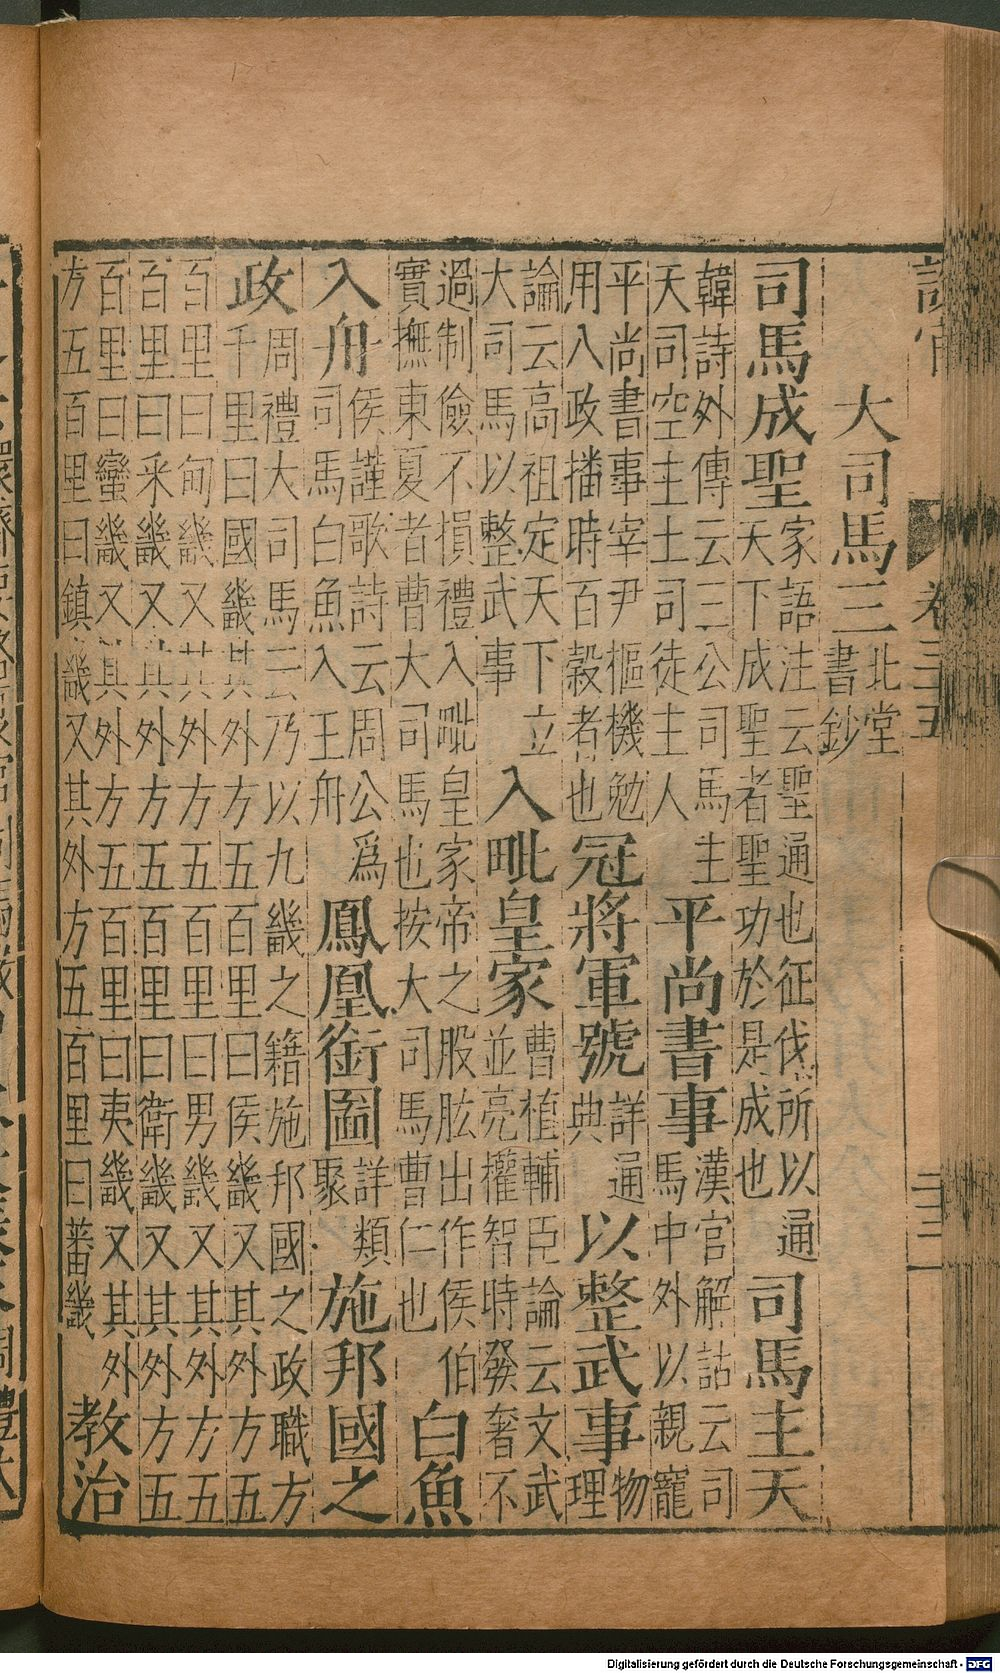 大司馬三 北堂
書鈔
司馬成聖 家語注云聖通也征伐所以通
天下成聖者聖功於是成也 司馬主天
韓詩外傳云三公司馬主
天司空主土司徒主人 平尚書事 漢官解詁云司
馬中外以親寵
平尚書事宰尹樞機勉
用入政播時百穀者也 冠將軍號 詳通
典 以整武事 物
理
論云高祖定天下立
大司馬以整武事 入毗皇家 曹植輔臣論云文武
並亮權智時發奢不
過制儉不損禮入毗皇家帝之股肱出作侯伯
實撫東夏者曹大司馬也按大司馬曹仁也 白魚
入舟 侯謹歌詩云周公爲
司馬白魚入王舟 鳳凰銜圖 詳類
聚 施邦國之
政 周禮大司馬云乃以九畿之籍施邦國之政職方
千里曰國畿其外方五百里曰侯畿又其外方五
百里曰甸畿又其外方五百里曰男畿又其外方五
百里曰采畿又其外方五百里曰衛畿又其外方五
百里曰蠻畿又其外方五百里曰夷畿又其外
方五百里曰鎮畿又其外方五百里曰蕃畿 教治
Digitalisierung gefördert durch die Deutsche Forschungsgemeinschaft - DFG